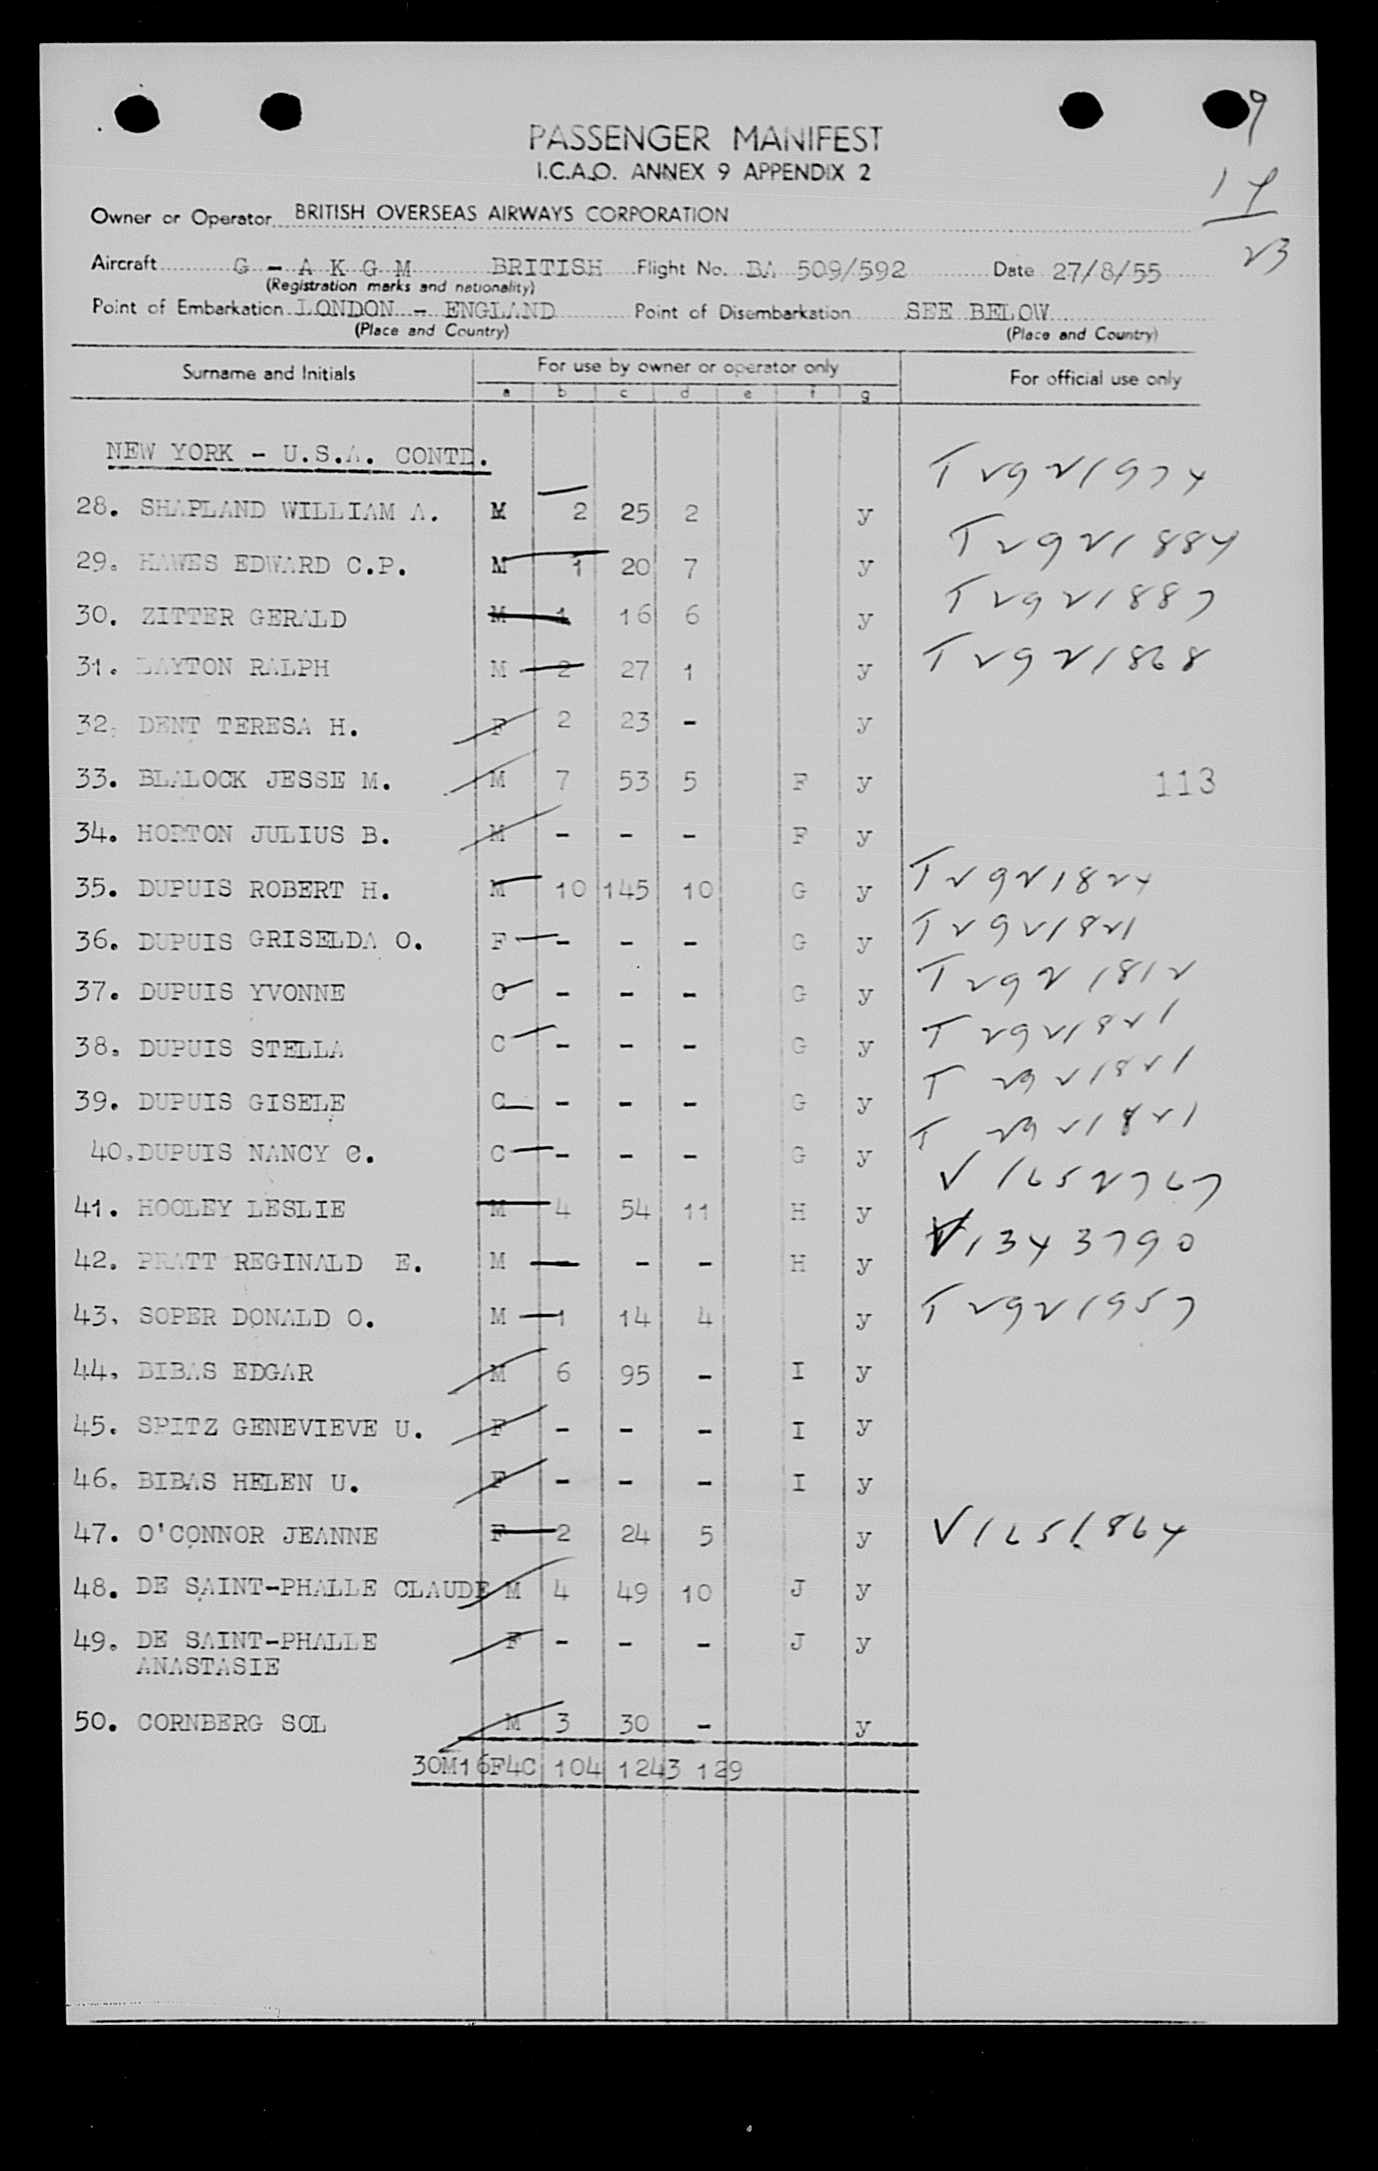 9
14
23
PASSENGER MANIFEST
I.C.A.O. ANNEX 9 APPENDIX 2
Owner or Operator BRITISH OVERSEAS AIRWAYS CORPORATION
Aircraft G - A K G M BRITISH Flight No. BA 509/592 Date 27/8/55
(Registration marks and nationality)
Point of Embarkation LONDON - ENGLAND Point of Disembarkation SEE BELOW
(Place and Country) (Place and Country)
Surname and Initials For use by owner or operator only For official use only
a b c d e f g
NEW YORK - U.S.A. CONTD.
28. SHAPLAND WILLIAM A. M 2 25 2 y T 2921974
29. HAWES EDWARD C.P. M 1 20 7 y T 2921884
30. ZITTER GERALD M 1 16 6 y T 2921887
31. LAYTON RALPH M 2 27 1 y T 2921868
32. DENT TERESA H. F 2 23 - y
33. BLALOCK JESSE M. M 7 53 5 F y 113
34. HORTON JULIUS B. M - - - F y
35. DUPUIS ROBERT H. M 10 145 10 G y T 2921824
36. DUPUIS GRISELDA O. F - - - G y T 2921821
37. DUPUIS YVONNE C - - - G y T 2921812
38. DUPUIS STELLA C - - - G y T 2921821
39. DUPUIS GISELE C - - - G y T 2921821
40. DUPUIS NANCY C. C - - - G y T 2921821
41. HOOLEY LESLIE M 4 54 11 H y V 1652767
42. PRATT REGINALD E. M - - - H y V 1343790
43. SOPER DONALD O. M 1 14 4 y T 2921957
44. BIBAS EDGAR M 6 95 - I y
45. SPITZ GENEVIEVE U. F - - - I y
46. BIBAS HELEN U. F - - - I y
47. O'CONNOR JEANNE F 2 24 5 y V 1651864
48. DE SAINT-PHALLE CLAUDE M 4 49 10 J y
49. DE SAINT-PHALLE F - - - J y
ANASTASIE
50. CORNBERG SOL M 3 30 - y
30M16F4C 104 1243 129